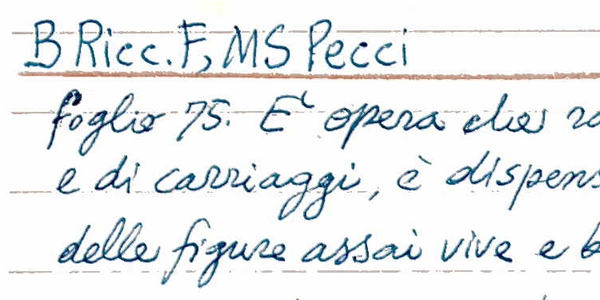 B Ricc. F, MS Pecci
foglio 75. E' opera che
e di carriaggi, è
delle figure assai vive e